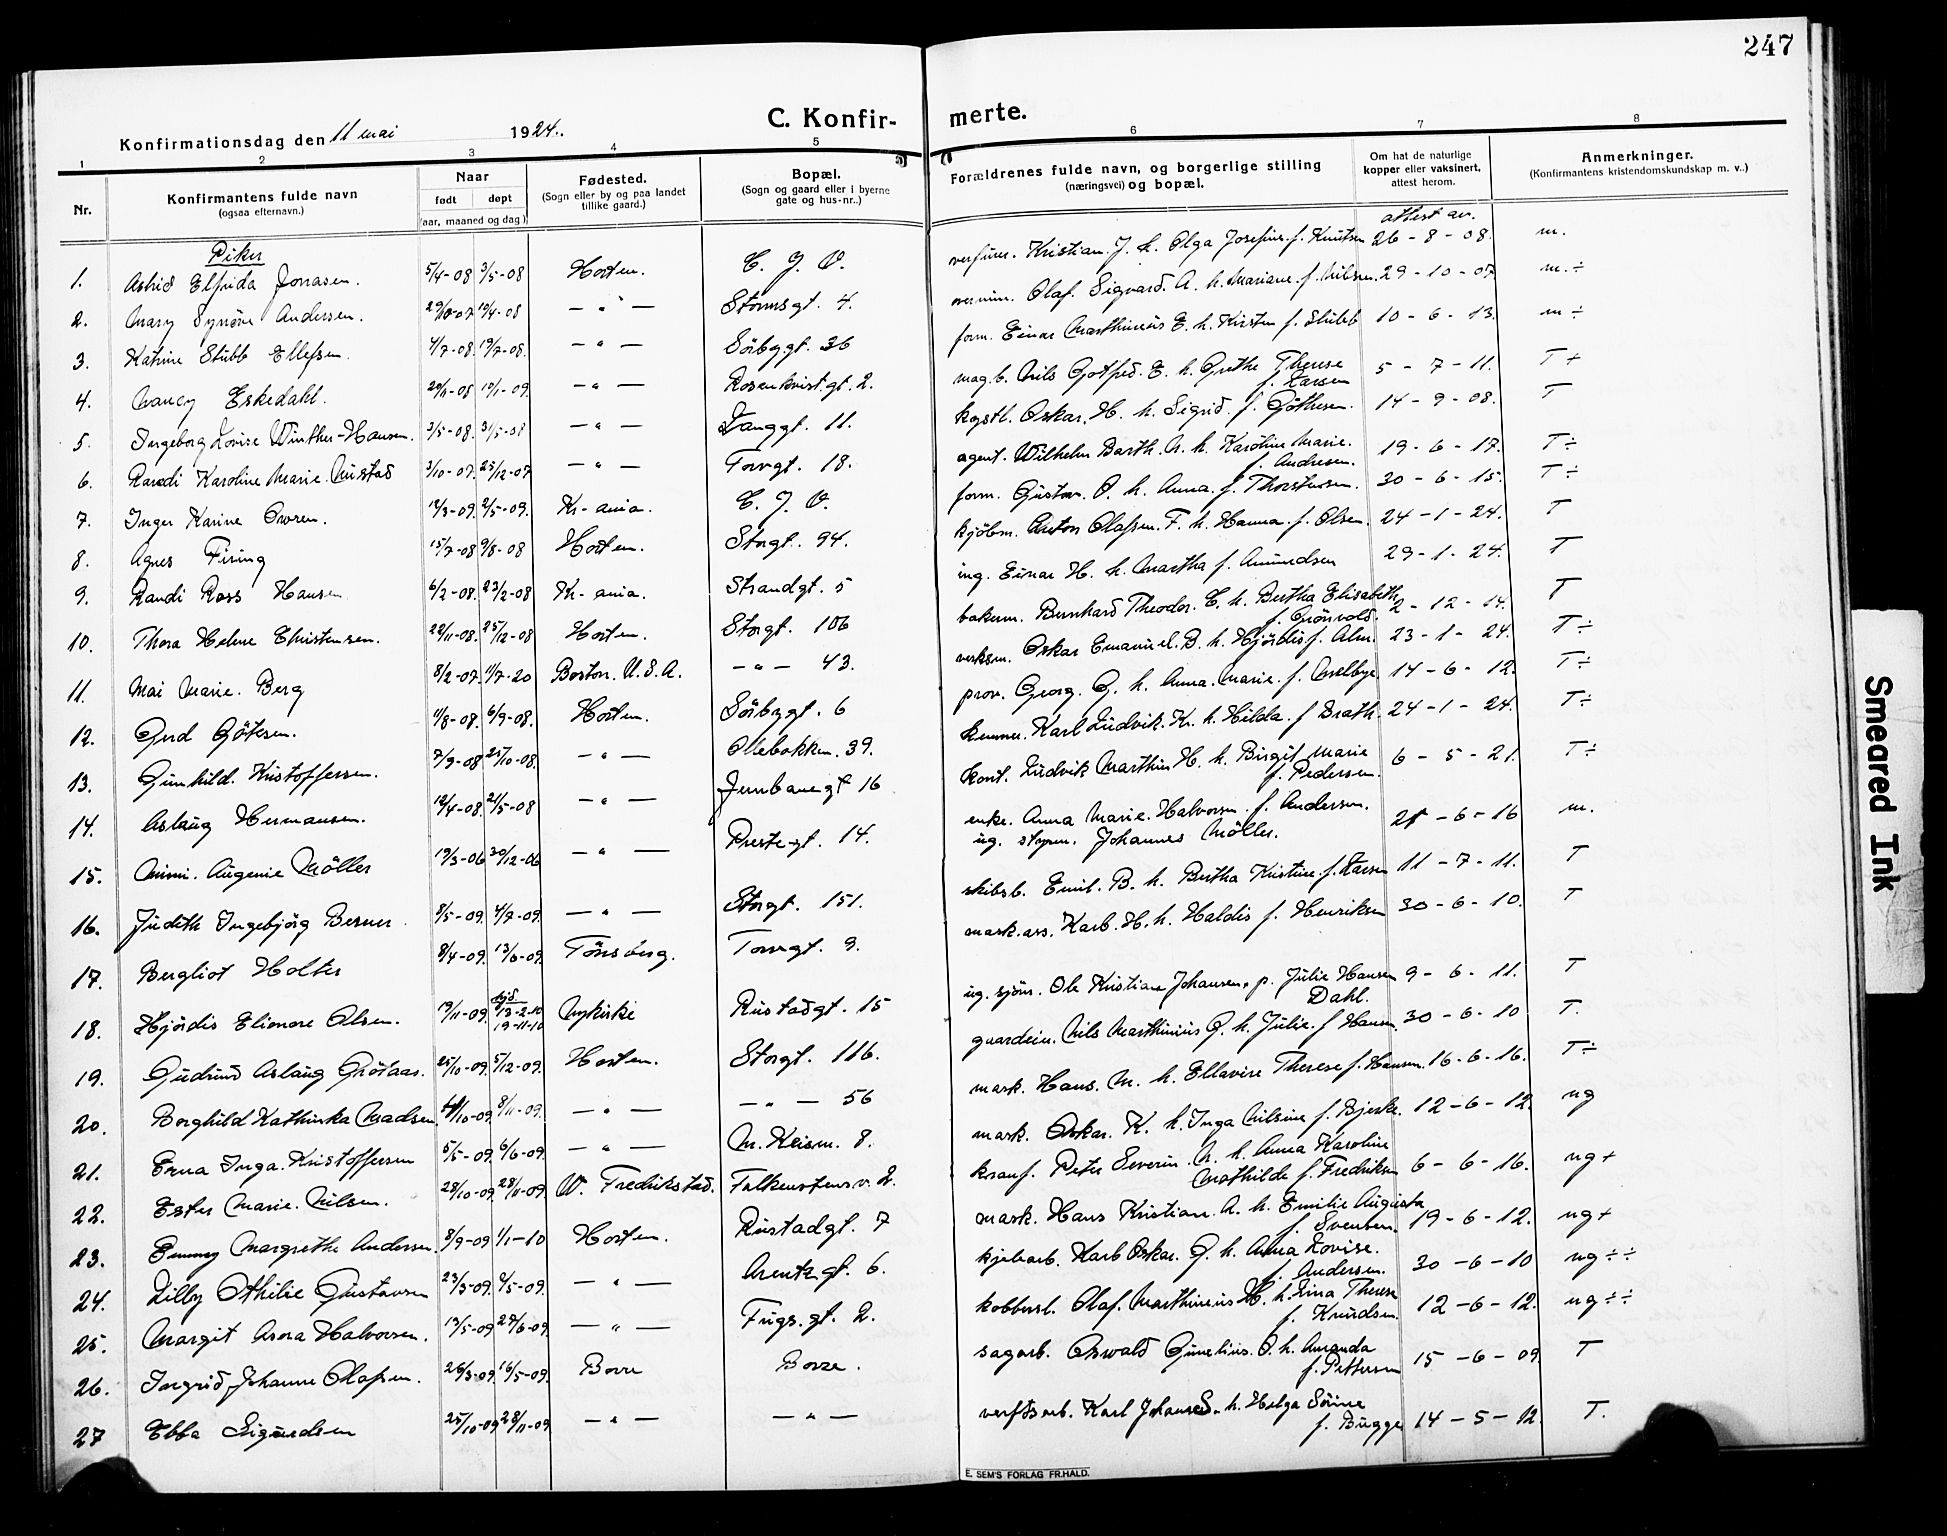 247
Konfirmationsdag den 11 mai 1924.
C. Konfir-
merte.
1 2 3 4 5 6 7 8
Nr.
Konfirmantens fulde navn
(ogsaa efternavn.)
Naar
født døpt
(aar, maaned og dag.)
Fødested.
(Sogn eller by og paa landet
tillike gaard.)
Bopæl.
(Sogn og gaard eller i byerne
gate og hus-nr..)
Forældrenes fulde navn, og borgerlige stilling
(næringsvei) og bopæl.
Om hat de naturlige
kopper eller vaksinert,
attest herom.
Anmerkninger.
(Konfirmantens kristendomskundskap m. v..)
Piker
attest av.
1. Astrid Elfrida Jonasen. 5/4-08 3/5-08 Horten. C. J. V. Kristian J. h. Olga Josefine f. Knutsen 26-8-08. m.
2. Mary Synøve Andersen. 29/10-07 19/4-08 — " — Stormsgt. 4. Olaf Sigvard A. h. Mariane f. Nilsen. 29-10-07 m.÷
3. Katrine Stubb Ellefsen. 4/7-08 19/7-08. — " — Sörbygt. 36 form. Einar Marthinius E. h. Kirsten f. Stubb 10-6-13. m÷
4. Nancy Eskedahl. 20/11-08 10/1-09. — " — Rosenkvistgt. 2. mag.b. Nils Gotfred E. h. Grethe Therese
f. Larsen 5-7-11. T+
5. Ingeborg Lovise Winther-Hansen. 3/5-08. 31/5-08 — " — Langgt. 11. Oskar H. h. Sigrid f. Göthesen. 14-9-08. T
6. Randi Karoline Marie Nustad 3/10-07. 25/12-07 — " — Torvgt. 18. agent. Wilhelm Barth. N. h. Karoline Marie.
f. Andresen. 19-6-17. T÷
7. Inger Karine Owren. 12/3-09. 2/5-09. Kr-ania. C. J. V. form. Gustav O. h. Anna f. Thorstensen. 30-6-15. T÷
8. Agnes Firing 15/7-08 9/8-08 Horten. Storgt. 94. kjöbm. Anton Olafsen F. h. Hanna f. Olsen 24-1-24. T
9. Randi Ross Hansen 6/2-08. 23/2-08 Kr-ania. Strandgt. 5 ing. Einar H. h. Martha f. Amundsen 29-1-24. T
10. Thora Helene Christensen. 22/11-08. 25/12-08 Horten. Storgt. 106 bakerm. Bernhard Theodor C. h. Bertha Elisabeth
f. Grönvold. 2-12-14. T
11. Mai Marie Berg 8/2-07. 11/7-20 Boston. U.S.A. — " — 43. verksm. Oskar Emanuel B. h. Hjördis f. Alm. 23-1-24. T÷
12. Gerd Götesen. 11/8-08. 6/9-08. Horten. Sörbygt. 6 prov. Georg G. h. Anna Marie f. Melbye 14-6-12. T÷
13. Gunhild Kristoffersen. 7/9-08 25/10-08. — " — Ollebakken. 39. Karl Ludvik K. h. Hilda f. Brath. 24-1-24. T÷
14. Aslaug Hermansen. 12/4-08. 21/5-08 — " — Jernbanegt 16 kont. Ludvik Marthin H. h. Birgit Marie
f. Pedersen. 6-5-21. T÷
15. Mimi Augenie Möller 19/3-06 30/12-06 — " — Prestegt. 14. enke. Anna Marie Halvorsen f. Andersen.
ug. styrm. Johannes Möller. 21-6-16 m.
16. Judith Ingebjörg Berner. 8/5-09. 4/7-09. — " — Storgt. 151. skibsb. Emil B. h. Bertha Kristine f. Larsen 11-7-11. T
17. Bergliot Holter 8/4-09. 13/6-09. Tönsberg. Torvgt. 9. mask.ass. Karl H. h. Haldis f. Henriksen 30-6-10. T
18. Hjördis Elionore Olsen. 19/11-09. hjd 13-2-10 19-11-10 Nykirke Rustadgt. 15 ug. sjöm. Ole Kristian Johansen, p. Julie Hansen
Dahl. 9-6-11. T
19. Gudrun Aslaug Grötaas. 25/10-09. 5/12-09. Horten. Storgt. 116. guardein. Nils Marthinius G. h. Julie f. Hansen 30-6-10 T.
20. Borghild Kathinka Madsen 11/10-09. 8/11-09. — " — — " — 56 mask. Hans M. h. Ellavise Therese f. Hansen. 16-6-16. T÷
21. Erna Inga Kristoffersen 5/5-09. 6/6-09. — " — N. Keisem. 8. mask. Oskar K. h. Inga Nilsine f. Bjerke. 12-6-12. ng
22. Ester Marie Nilsen. 28/10-09. 28/11-09 W. Fredrikstad. Falkenstensv. 2. kranf. Peter Severin N. h. Anna Karoline
Mathilde f. Fredriksen 6-6-16. ng+
23. Emmy Margrethe Andersen. 8/9-09 1/1-10 Horten. Rustadgt. 7 mask. Hans Kristian A. h. Emilie Augusta
f. Svendsen. 19-6-12. ng+
24. Lilly Othilie Gustavsen 23/3-09. 9/5-09. — " — Arentzgt. 6. kjelearb. Karl Oskar G. h. Anna Lovise.
f. Andersen. 30-6-10 ng÷÷
25. Margit Asora Halvorsen. 19/5-09 27/6-09. — " — Fugs.gt. 2. kobbersl. Olaf Marthinius H. h. Lina Therese
f. Knudsen. 12-6-12. ng÷÷
26. Ingrid Johanne Olafsen. 26/3-09. 16/5-09. Borre Borre. sagarb. Oswald Gunelius O. h. Amanda
f. Pettersen 15-6-09. T
27 Ebba Sigurdsen 25/10-09 28/11-09 — " — — " — verftsarb. Karl Johan S. h. Helga Sörine
f. Bugge 14-5-12. T.
E. SEM'S FORLAG FR.HALD.
Smeared Ink